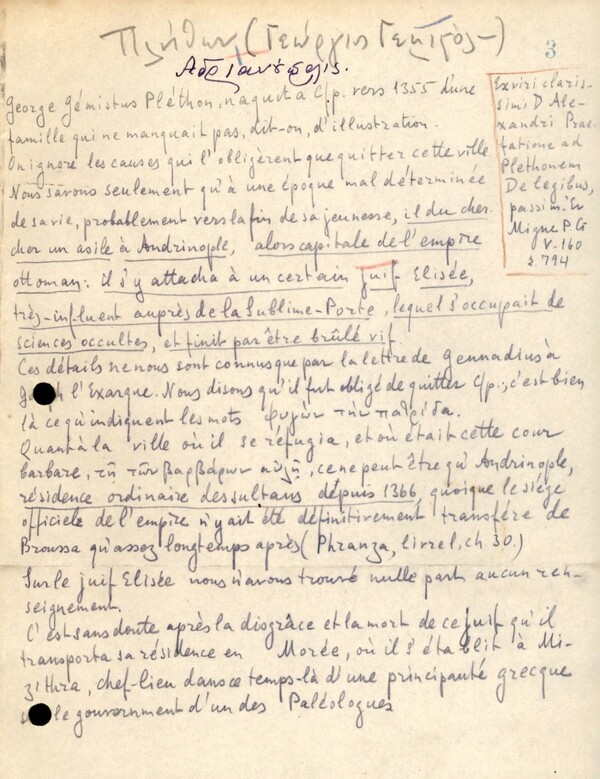 Πλήθων (Γεώργιος Γεμιστός–)
3
Αδριανούπολις.
George Gémistus Pléthon, naquit à C/p. vers 1355 d'une
famille qui ne manquait pas, dit-on, d'illustration.
On ignore les causes qui l'obligèrent que quitter cette ville.
Nous savons seulement qu'à une époque mal déterminée
de sa vie, probablement vers la fin de sa jeunesse, il du cher-
cher un asile à Andrinople, alors capitale de l'empire
ottoman: il s'y attacha à un certain juif Elisée,
très-influent auprès de la Sublime-Porte, lequel s'occupait de
sciences occultes, et finit par être brûlé vif.
Ces détails ne nous sont connus que par la lettre de Gennadius à
l'Exarque. Nous disons qu'il fut obligé de quitter C/p., c'est bien
là ce qu'indiquent les mots φυγών την πατρίδα.
Quant à la ville où il se réfugia, et où était cette cour
barbare, τῇ τῶν βαρβάρων αὐλῇ, ce ne peut être qu'Andrinople,
résidence ordinaire des sultans depuis 1366, quoique le siége
officiele de l'empire n'y ait été définitivement transfére de
Broussa qu'assez longtemps après (Phranza, livre I, ch. 30.)
Sur le juif Elisée nous n'avons trouvé nulle part aucun ren-
seignement.
C'est sans doute après la disgrâce et la mort de ce juif qu'il
transporta sa résidence en Morée, où il s'établit à Mi-
zithra, chef-lieu dans ce temps-là d'une principauté grecque
le gouvernment d'un des Paléologues
Ex viri claris-
simi D. Ale-
xandri Prae-
fatione ad
Plethonem
De legibus,
passim. Ex
Migne P. G
v. 160
σ. 794